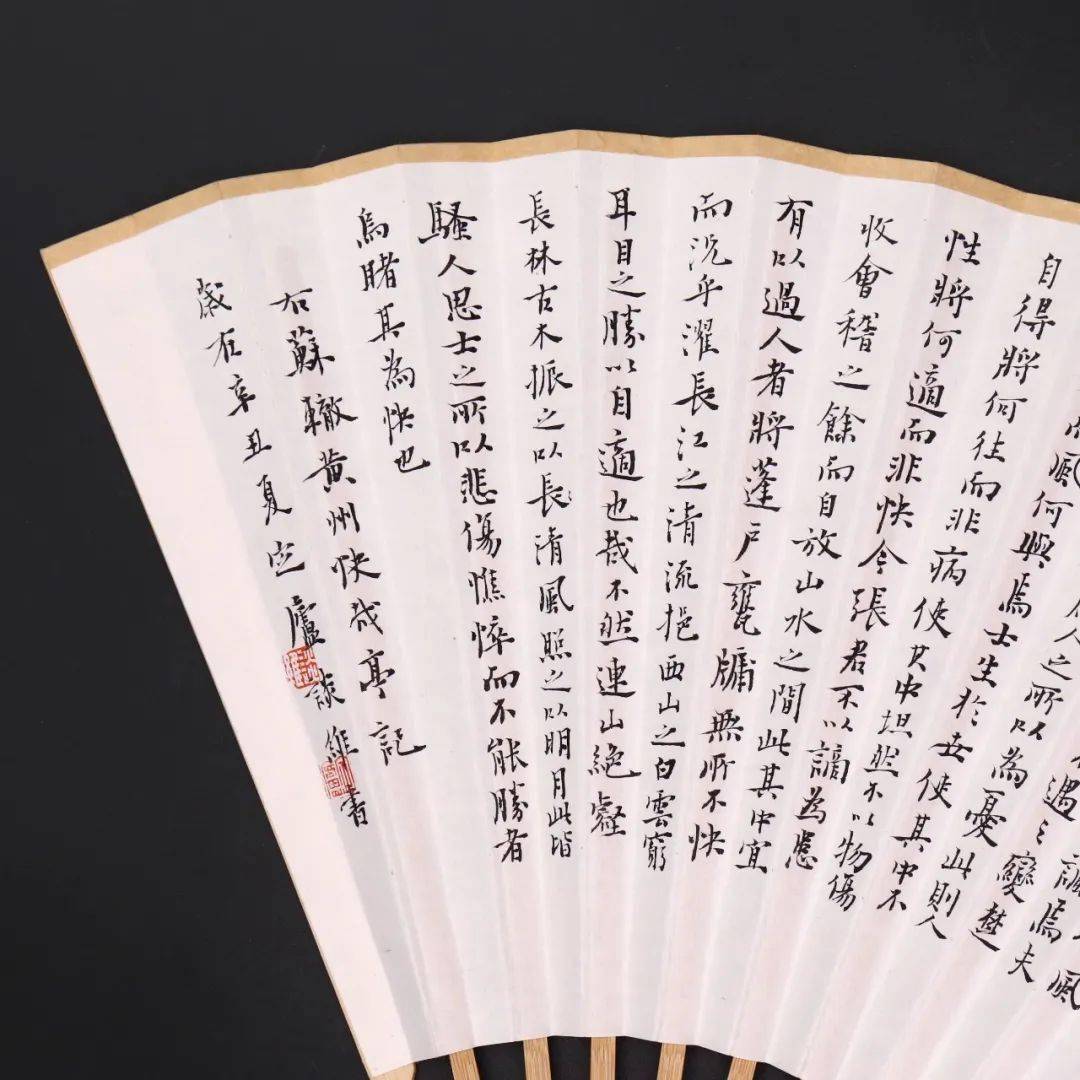 焉夫風
遇之變楚
人之所以為憂此則人
風何與焉士生於世使其中不
自得將何往而非病使其中坦然不以物傷
性將何適而非快今張君不以謫為患
收會稽之餘而自放山水之間此其中宜
有以過人者將蓬戶甕牖無所不快
而況乎濯長江之清流挹西山之白雲窮
耳目之勝以自適也哉不然連山絕壑
長林古木振之以長清風照之以明月此皆
騷人思士之所以悲傷憔悴而不能勝者
烏睹其為快也
右蘇轍黃州快哉亭記
歲在辛丑夏定廬談維書